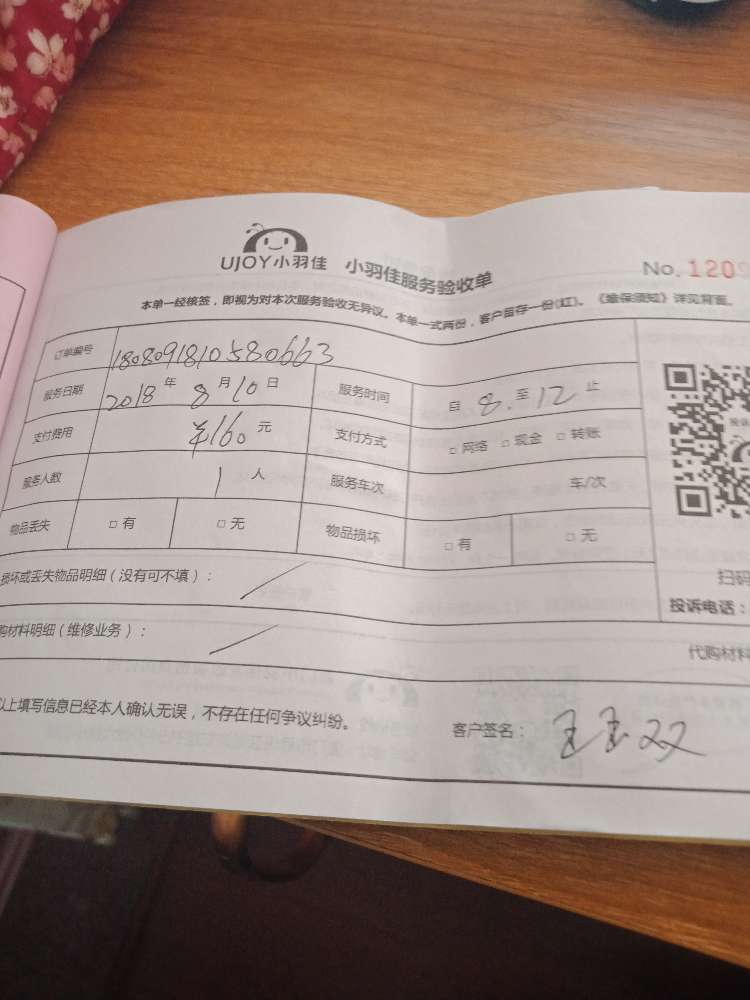 UJOY小羽佳 小羽佳服务验收单 No.1209
本单一经核签，即视为对本次服务验收无异议。本单一式两份，客户留存一份(红)。《维保须知》详见背面。
订单编号 180809181058066​3
服务日期 2018年8月10日 服务时间 自8.至12止
支付费用 ¥160元 支付方式 □网络 □现金 □转账
服务人数 1人 服务车次 车/次
物品丢失 □有 □无 物品损坏 □有 □无
损坏或丢失物品明细（没有可不填）： 扫码
投诉电话：
购材料明细（维修业务）： 代购材料
以上填写信息已经本人确认无误，不存在任何争议纠纷。 客户签名：王玉双